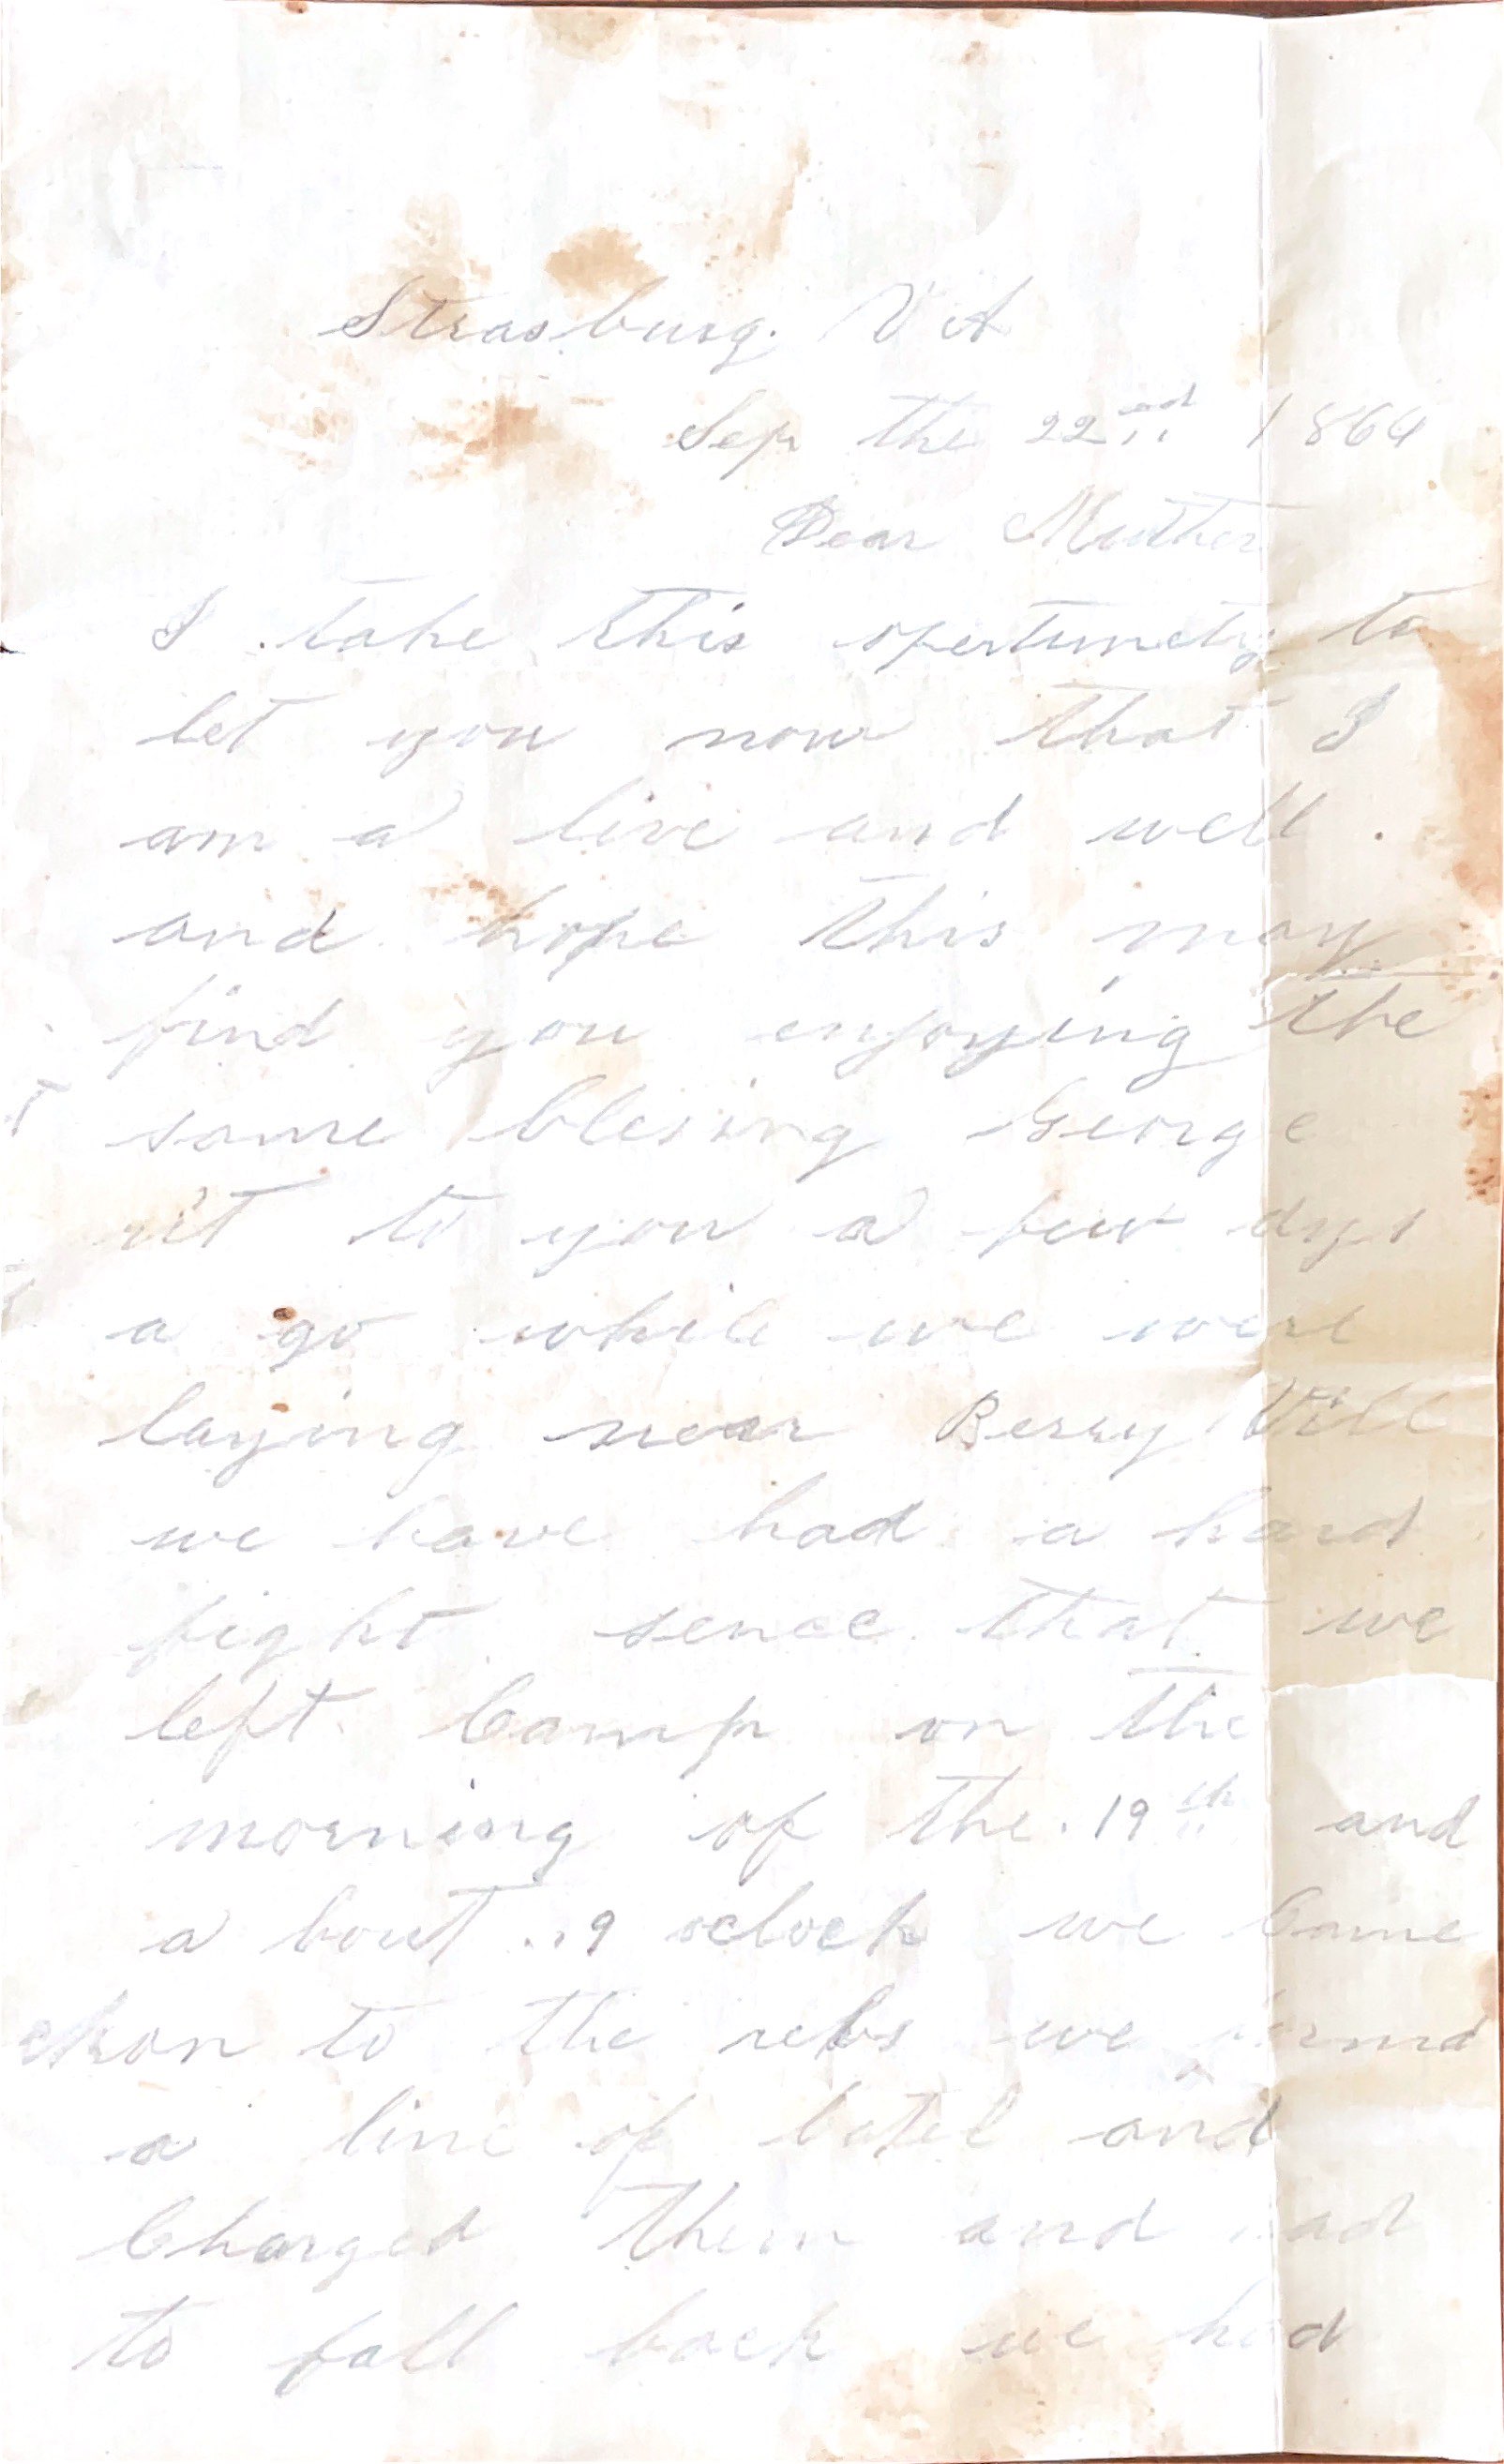 Strasburg. VA
Sep the 22nd 1864
Dear Muther
I take this opertunety to
let you now that I
am a live and well.
and hope this may
find you enjoying the
same blesing George
rit to you a few dys
a go while we were
laying near Berry Vill
we have had a hard
fight sence that we
left Camp on the
morning of the. 19th and
a bout .. 9 oclock we Came
to the rebs we formd
a line of batel and
Charged them and had
to fall back we had